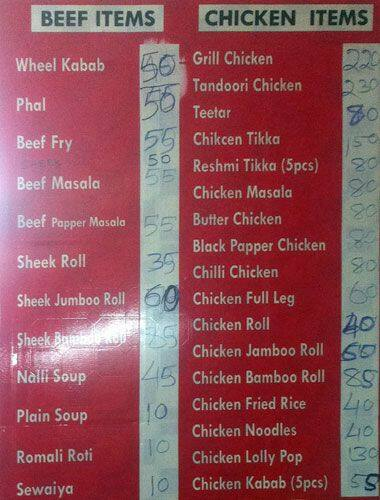 BEEF ITEMS
Wheel Kabab 50
Phal 50
Beef Fry 55
50
Beef Masala 55
Beef Papper Masala 55
Sheek Roll 35
Sheek Jumboo Roll 60
Sheek Bamboo Roll 85
Nalli Soup 45
Plain Soup 10
Romali Roti 10
Sewaiya 10
CHICKEN ITEMS
Grill Chicken 220
Tandoori Chicken 230
Teetar 80
Chikcen Tikka 150
Reshmi Tikka (5pcs) 80
Chicken Masala 80
Butter Chicken 80
Black Papper Chicken 80
Chilli Chicken 80
Chicken Full Leg 60
Chicken Roll 40
Chicken Jamboo Roll 60
Chicken Bamboo Roll 85
Chicken Fried Rice 40
Chicken Noodles 40
Chicken Lolly Pop 130
Chicken Kabab (5pcs) 55